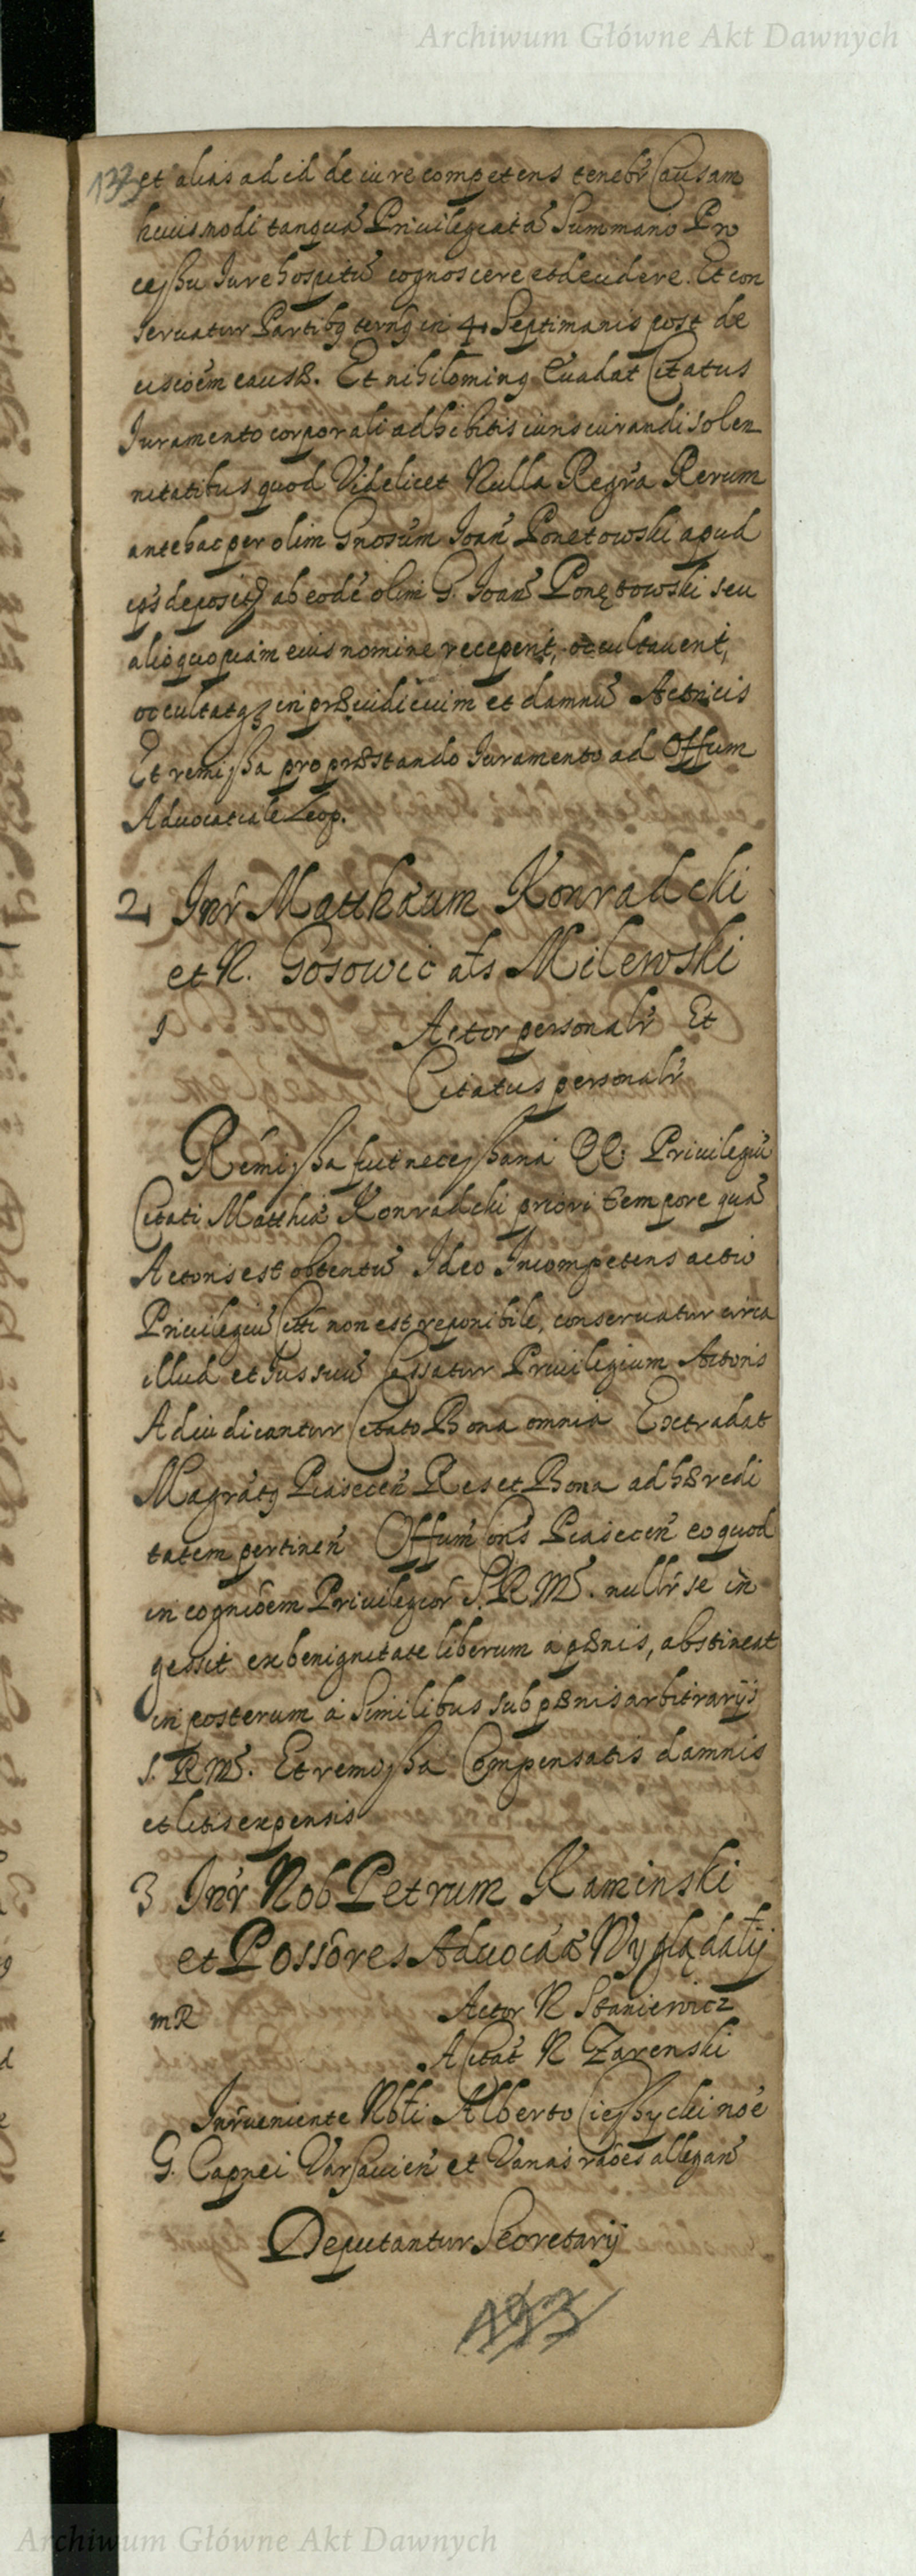 Archiwum Główne Akt Dawnych
133 et alias ad id de iure competens tenebr Causam
huiusmodi tanquā Priuilegiatā Summario Pro
cessu Iure hospitū cognoscere et decidere. Et con
seruatur Partibq in 4. Septimanis post de
cisiōem causæ. Et nihilominq Euadat Citatus
Iuramento corporali adhibitis iurisiurandi solen
nitatibus quod Videlicet Nulla Regra Rerum
antehac per olim Gnosum Ioan Ponetowski apud
ips deposit ab eodē olim G. Ioan Ponętowski seu
alio quopiam eius nomine recepent, occultauent,
occultatqq in præiudicium et damnū Actricis
Et remissa pro præstando Iuramento ad Offum
Aduocatiale Leop.
2 Inr Matthæum Konradcki
et N. Gosowic als Milewski
Actor personalr Et
Citatus personalr
Remissa fuit necessaria Priuilegiū
Citati Matthiæ Konradcki priori tempore quā
Actoris est obtentū Ideo Incompetens actio
Priuilegiū Citti non est reponibile, conseruatur circa
illud et Ius suū Cassatur Priuilegium Actoris
Adiudicantur Citato Bona omnia Extradat
Magratq Piasecen Res et Bona ad hæredi
tatem pertinen Offum Cons Piasecen eo quod
in cogniōem Priuilegior S. R. M. nullr se in
gessit ex benignitate liberum a pænis, abstineat
in posterum a Similibus sub pænis arbitrarijs
S. R. M. Et remissa Compensatis damnis
et litis expensis
3 Inr Nob Petrum Kaminski
et Possōres Aduocaæ Wyglądałij
mR Actor N Staniewicz
A Citat N Zarenski
Inrueniente Nbli Alberto Ciessycki noē
G. Capnei Varsauien et Varias raōes allegan
Deputantur Secretarij
193
Archiwum Główne Akt Dawnych